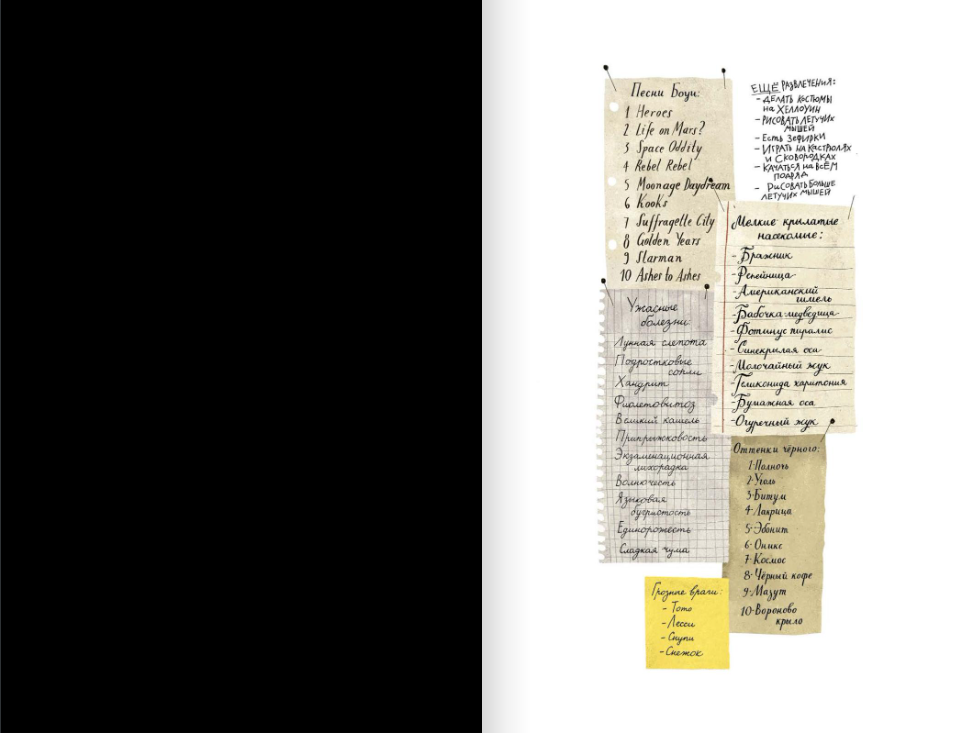 Песни Боуи:
1 Heroes
2 Life on Mars?
3 Space Oddity
4 Rebel Rebel
5 Moonage Daydream
6 Kooks
7 Suffragette City
8 Golden Years
9 Starman
10 Ashes to Ashes
ЕЩЁ РАЗВЛЕЧЕНИЯ:
- ДЕЛАТЬ КОСТЮМЫ
на ХЕЛЛОУИН
- РИСОВАТЬ ЛЕТУЧИХ
МЫШЕЙ
- Есть ЗЕФИРКИ
- ИГРАТЬ НА КАСТРЮЛЯХ
и СКОВОРОДКАХ
- КАЧАТЬСЯ НА ВСЁМ
ПОДРЯД
- РИСОВАТЬ БОЛЬШЕ
ЛЕТУЧИХ МЫШЕЙ
Мелкие крылатые
насекомые:
- Бражник
- Репейница
- Американский
шмель
- Бабочка-медведица
- Фотинус пиралис
- Синекрылая оса
- Молочайный жук
- Геликонида харитония
- Бумажная оса
- Огуречный жук
Ужасные
болезни:
Лунная слепота
Подростковые
сопли
Хандрит
Фиолетовитоз
Великий кашель
Припрыжковость
Экзаменационная
лихорадка
Волнючесть
Языковая
бугристость
Единорожесть
Сладкая чума
Оттенки чёрного:
1-Полночь
2-Уголь
3-Битум
4-Лакрица
5-Эбонит
6-Оникс
7-Космос
8-Чёрный кофе
9-Мазут
10-Вороново
крыло
Грозные враги:
- Тото
- Лесси
- Снупи
- Снежок